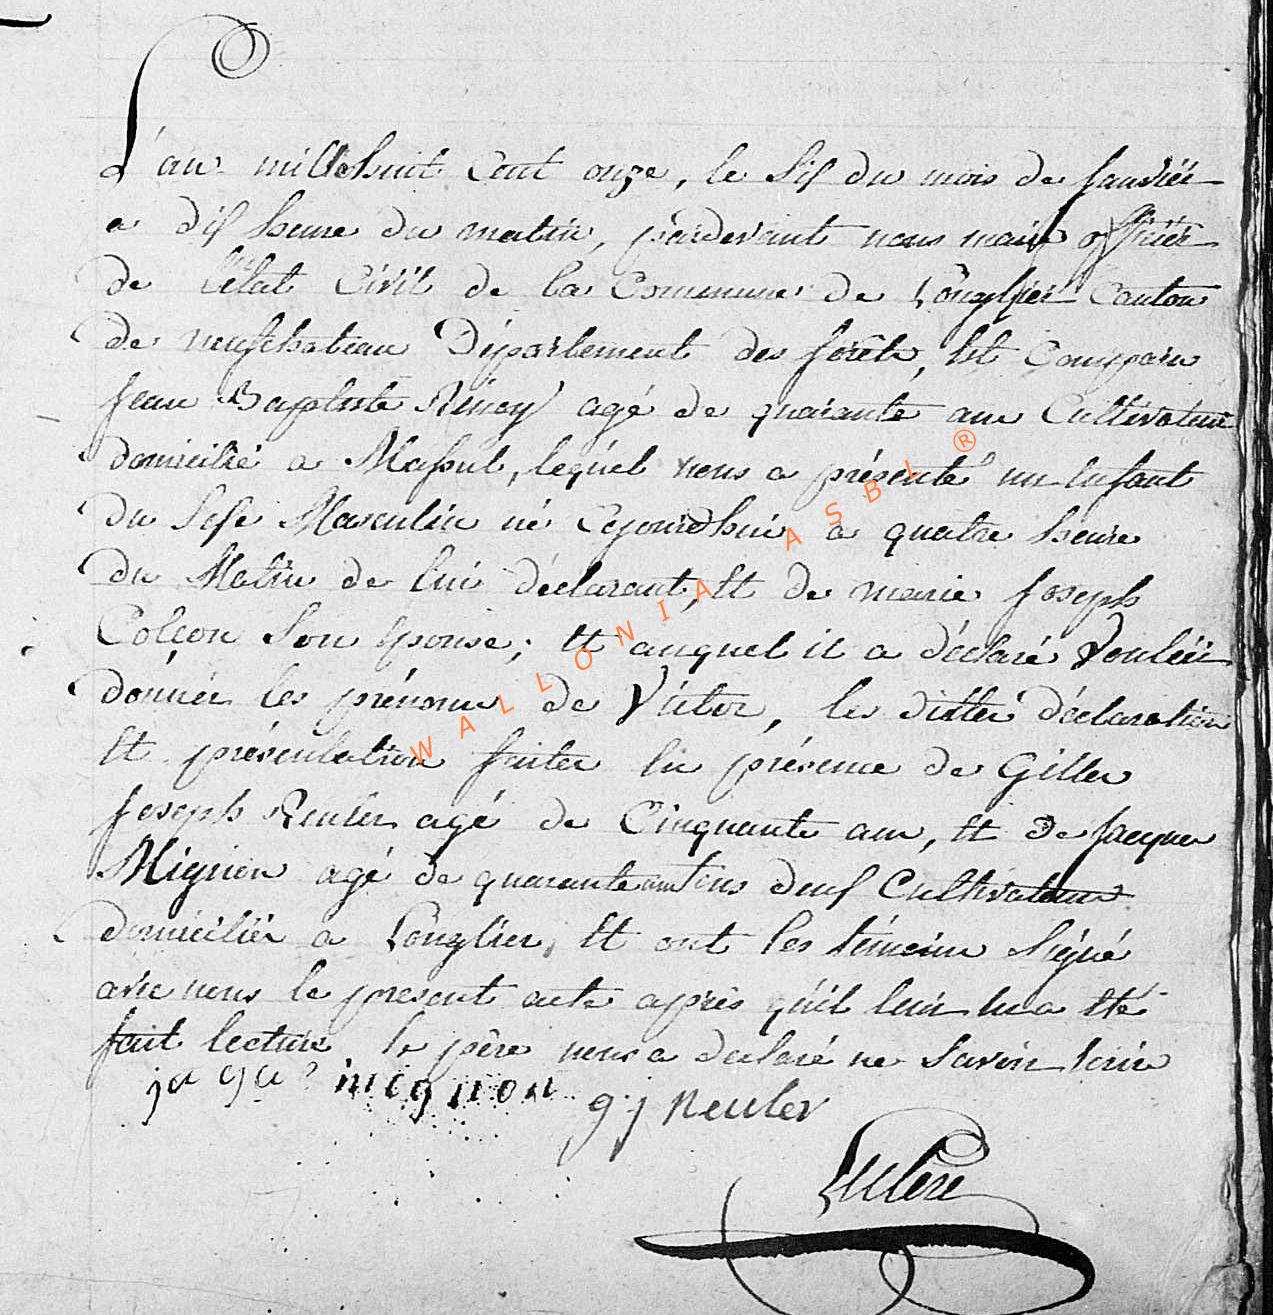 L'an mil huit Cent onze, le Six du mois de Janvier
a dix heure du matin, pardevant nous maire officier
de l'etat Civil de la Commune de Longlier Canton
de neufchateau Département des forêts, est Comparu
Jean Baptiste agé de quarante ans Cultivateur
domicilié a Massul, lequel nous a présenté un Enfant
du Sexe Masculin né Cejourdhui a quatre heure
du Matin de lui déclarant, Et de marie Joseph
Colçon Son Epouse; Et auquel il a déclaré Vouloir
donner les prénoms de Victor, les dittes déclaration
Et présentation faites En présence de Gilles
Joseph Reuler agé de Cinquante ans, Et de Jacques
Mignon agé de quarante deux Cultivateurs
domiciliés a Longlier, Et ont les témoins Signé
avec nous le present acte après qu'il leur En a Eté
fait lecture, le père nous a declaré ne Savoir Ecrire
mignon g j Reuler
WALLONIA ASBL ®